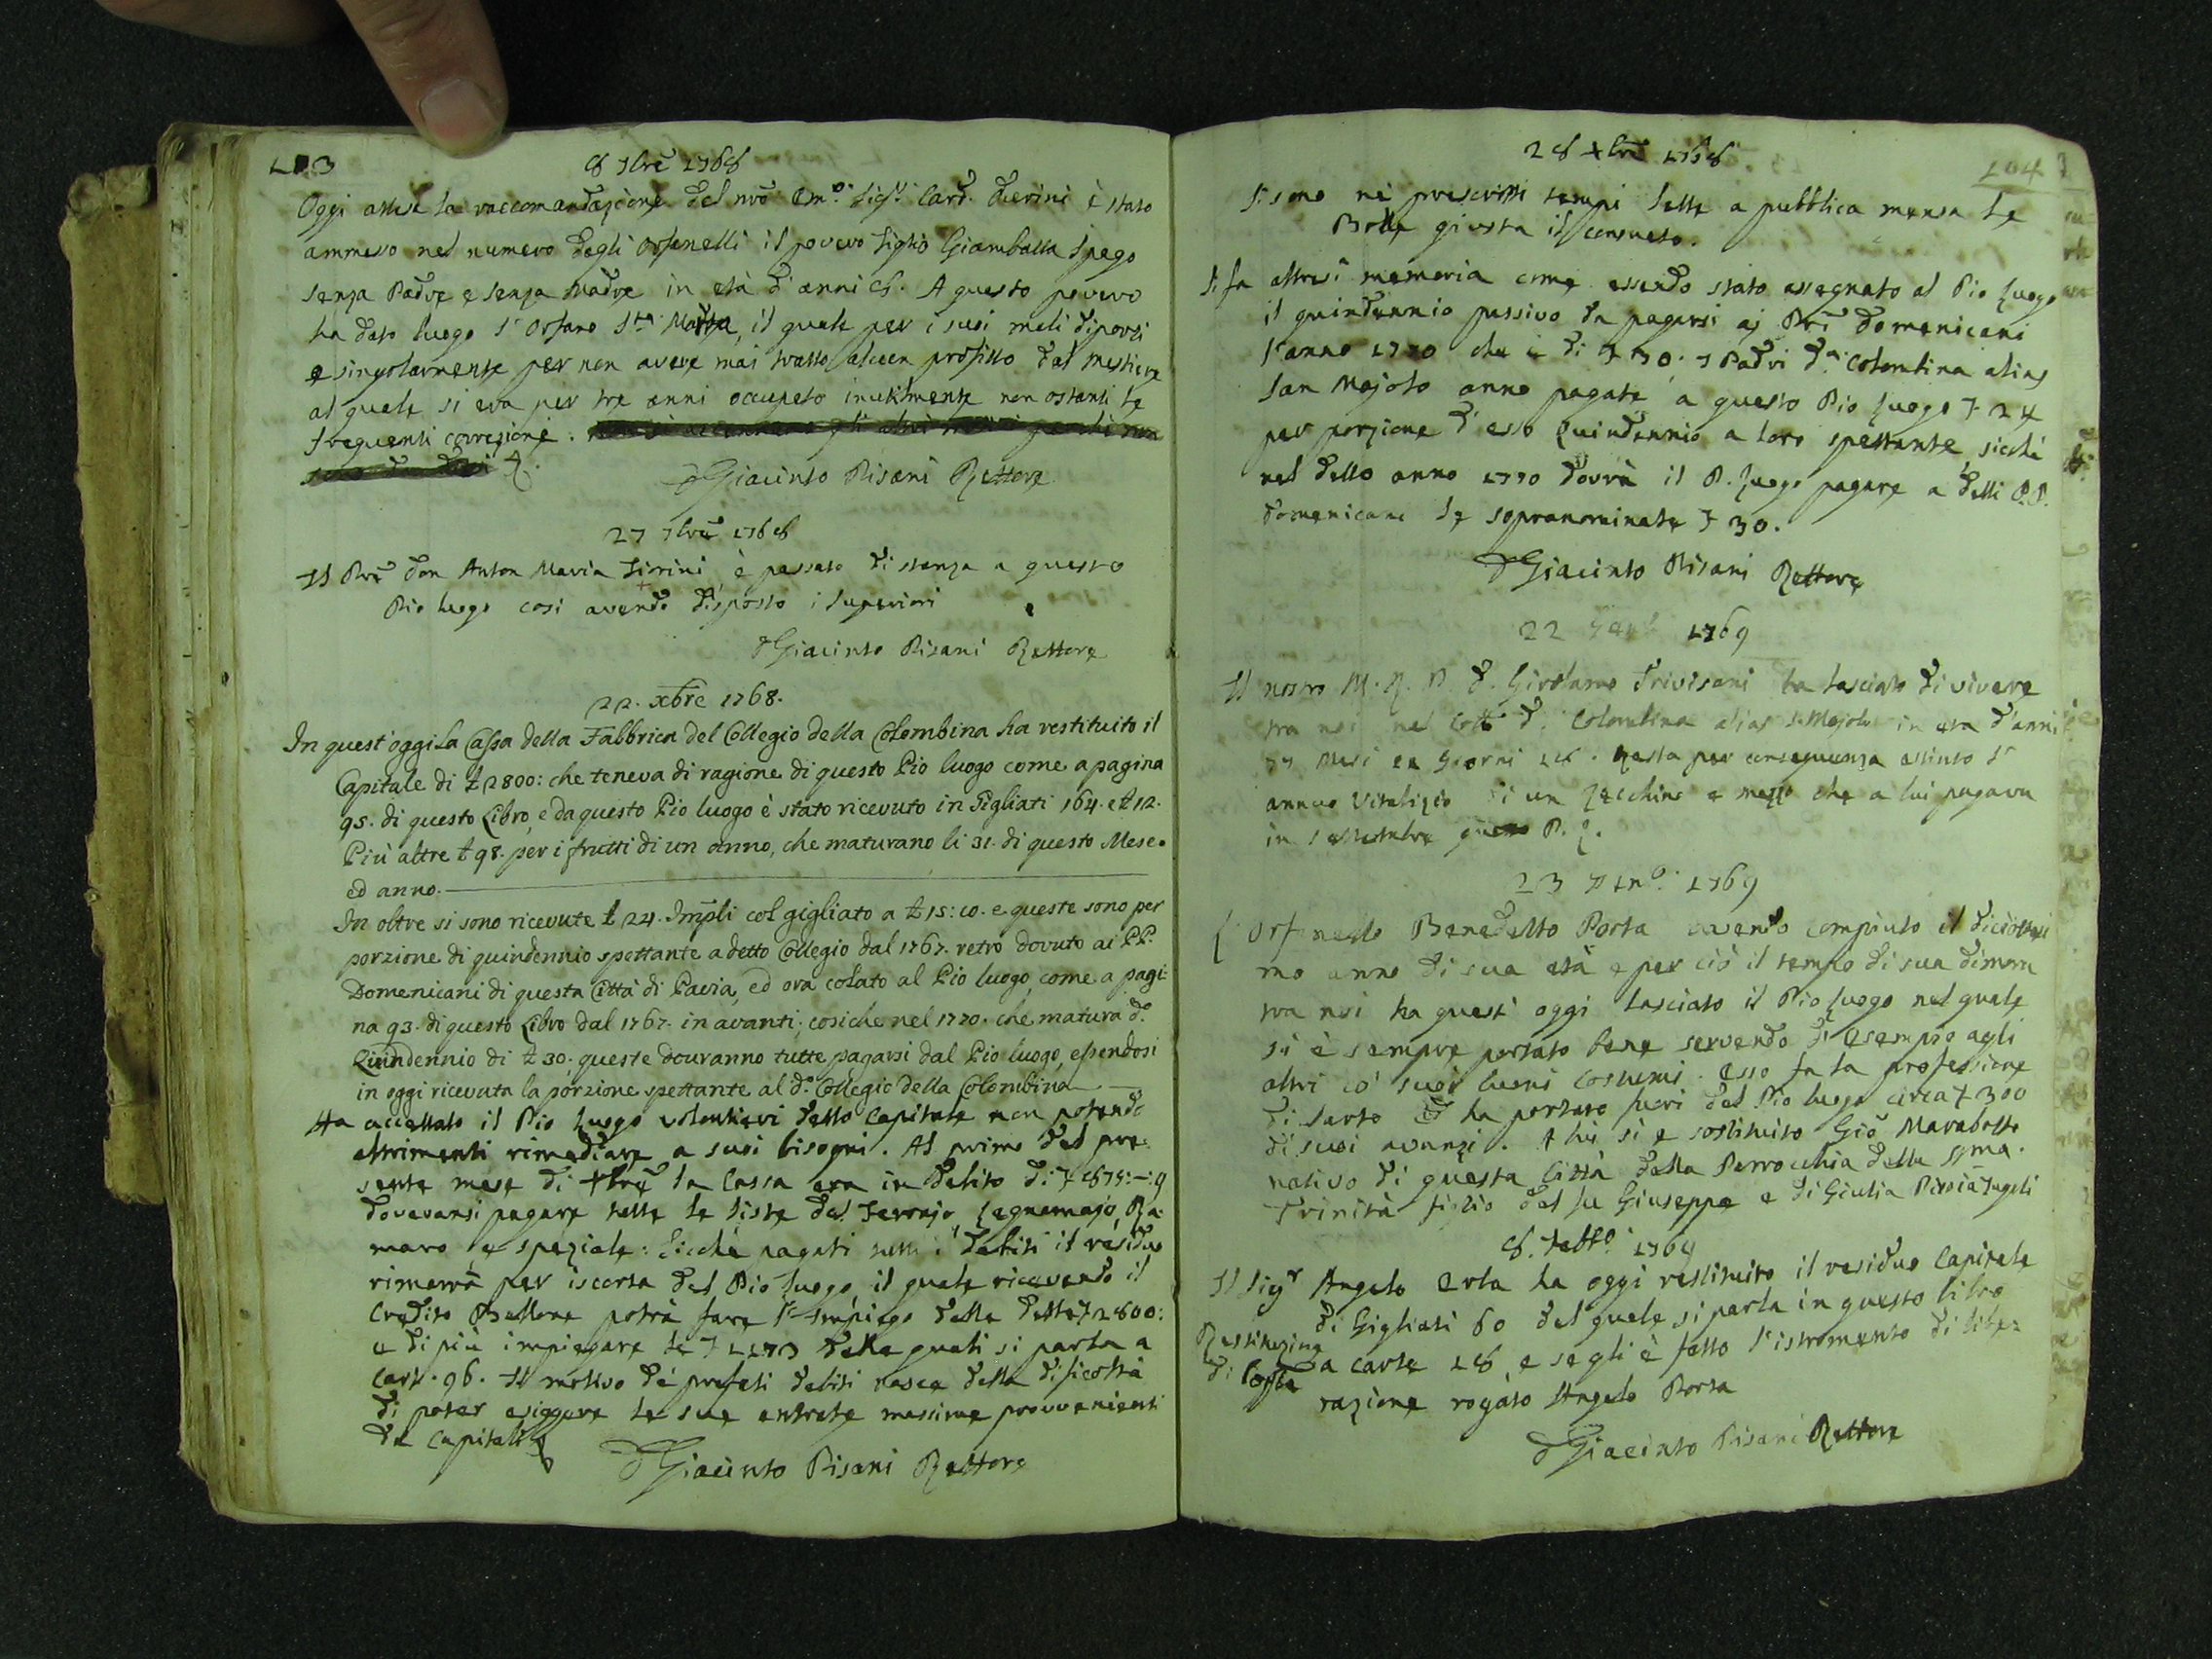 103
8 7bre 1768
Oggi attesa la raccomandazione del nro Em.o Sigr Card. Durini è stato
ammesso nel numero degli Orfanelli il povero figlio Giambatta Spego
senza Padre e senza Madre in età d'anni 8. A questo povero
ha dato luogo l'Orfano il quale per i suoi mali diporti
e singolarmente per non avere mai tratto alcun profitto dal mestiere
al quale si era per tre anni occupato inutilmente non ostanti le
frequenti correzione.
D Giacinto Pisani Rettore
27 7bre 1768
Il Pre don Anton Maria Sirrini è passato di stanza a questo
Pio luogo cosi avendo disposto i Superiori
D Giacinto Pisani Rettore
22. xbre 1768.
In quest'oggi la Cassa della Fabbrica del Collegio della Colombina ha restituito il
Capitale di £ 2800: che teneva di ragione di questo Pio luogo come a pagina
95. di questo Libro, e da questo Pio luogo è stato ricevuto in Gigliati 164. e £ 12.
Più altre £ 98. per i frutti di un anno, che maturano li 31. di questo Mese.
ed anno.
In oltre si sono ricevute £ 24. Impli col gigliato a £ 15: 10. e queste sono per
porzione di quindennio spettante a detto Collegio dal 1767. retro dovuto ai PP.
Domenicani di questa Città di Pavia, ed ora colato al Pio luogo, come a pagi-
na 93. di questo Libro dal 1767. in avanti; cosiche nel 1770. che matura d.o
Quindennio di £ 30; queste dovranno tutte pagarsi dal Pio luogo, essendosi
in oggi ricevuta la porzione spettante al d.o Collegio della Colombina
Ha accettato il Pio luogo volontieri detto Capitale non potendo
altrimenti rimediare a suoi bisogni. Al primo del pre-
sente mese di xbre la Cassa era in debito di £ 875:-:9
dovevansi pagare tutte le liste del Ferrajo, Legnamajo, Ra-
maro e speziale: Sicchè pagati tutti i debiti il residuo
rimerrà per iscorta del Pio luogo, il quale ricevendo il
Credito Ballone potrà fare l'Impiego delle dette £ 2800:
e di più impiegare le £ 1173 delle quali si parla a
Cart. 96. Il motivo de' prefati debiti nasce dalla dificoltà
di poter esiggere le sue entrate massime provvenienti
da Capitali
D Giacinto Pisani Rettore
104
28 xbre 1768
Si sono nè prescritti tempi lette a pubblica mensa le
Bolle giusta il consueto.
Si fa altresì memoria come essendo stato assegnato al Pio luogo
il quindennio passivo da pagarsi ai Pri Domenicani
l'anno 1770 che è di £ 30. I Padri d.a Colombina alias
San Majolo anno pagate a questo Pio luogo £ 24
per porzione d'esso Quindennio a loro spettante, sicchè
nel detto anno 1770 dovrà il P. luogo pagare a detti P.P.
Domenicani le sopranominate £ 30.
D Giacinto Pisani Rettore
22 1769
Il nostro M. R. P. D. Girolamo Trivisani ha lasciato di vivere
tra noi nel Coll. d. Colombina alias S. Majolo in eta d'anni
77 Mesi Giorni 18. Resta per conseguenza estinto l'
annuo Vitalizio di un Zecchino e mezzo che a lui pagava
in Settembre questo P. L.
23 1769
L'Orfanello Benedetto Porta avendo compiuto il diciottesi
mo anno di sua età e per ciò il tempo di sua dimora
tra noi ha quest'oggi lasciato il Pio luogo nel quale
si è sempre portato bene servendo di esempio agli
altri co' suoi buoni Costumi. Esso fa la professione
di Sarto ed ha portato fuori del Pio luogo circa £ 300
di suoi avanzi. A lui si è sostituito Gio Marabotto
nativo di questa Città della Parrocchia della SSma.
Trinità figlio del fu Giuseppe e di Giulia
8. Febb.o 1769
Il Sigr Angelo Erba ha oggi restituito il residuo Capitale
di Gigliati 60 del quale si parla in questo libro
Restituzione
di Capite
a carte 18, e se gli è fatto l'istromento di libe-
razione rogato Angelo Porta
D Giacinto Pisani Rettore